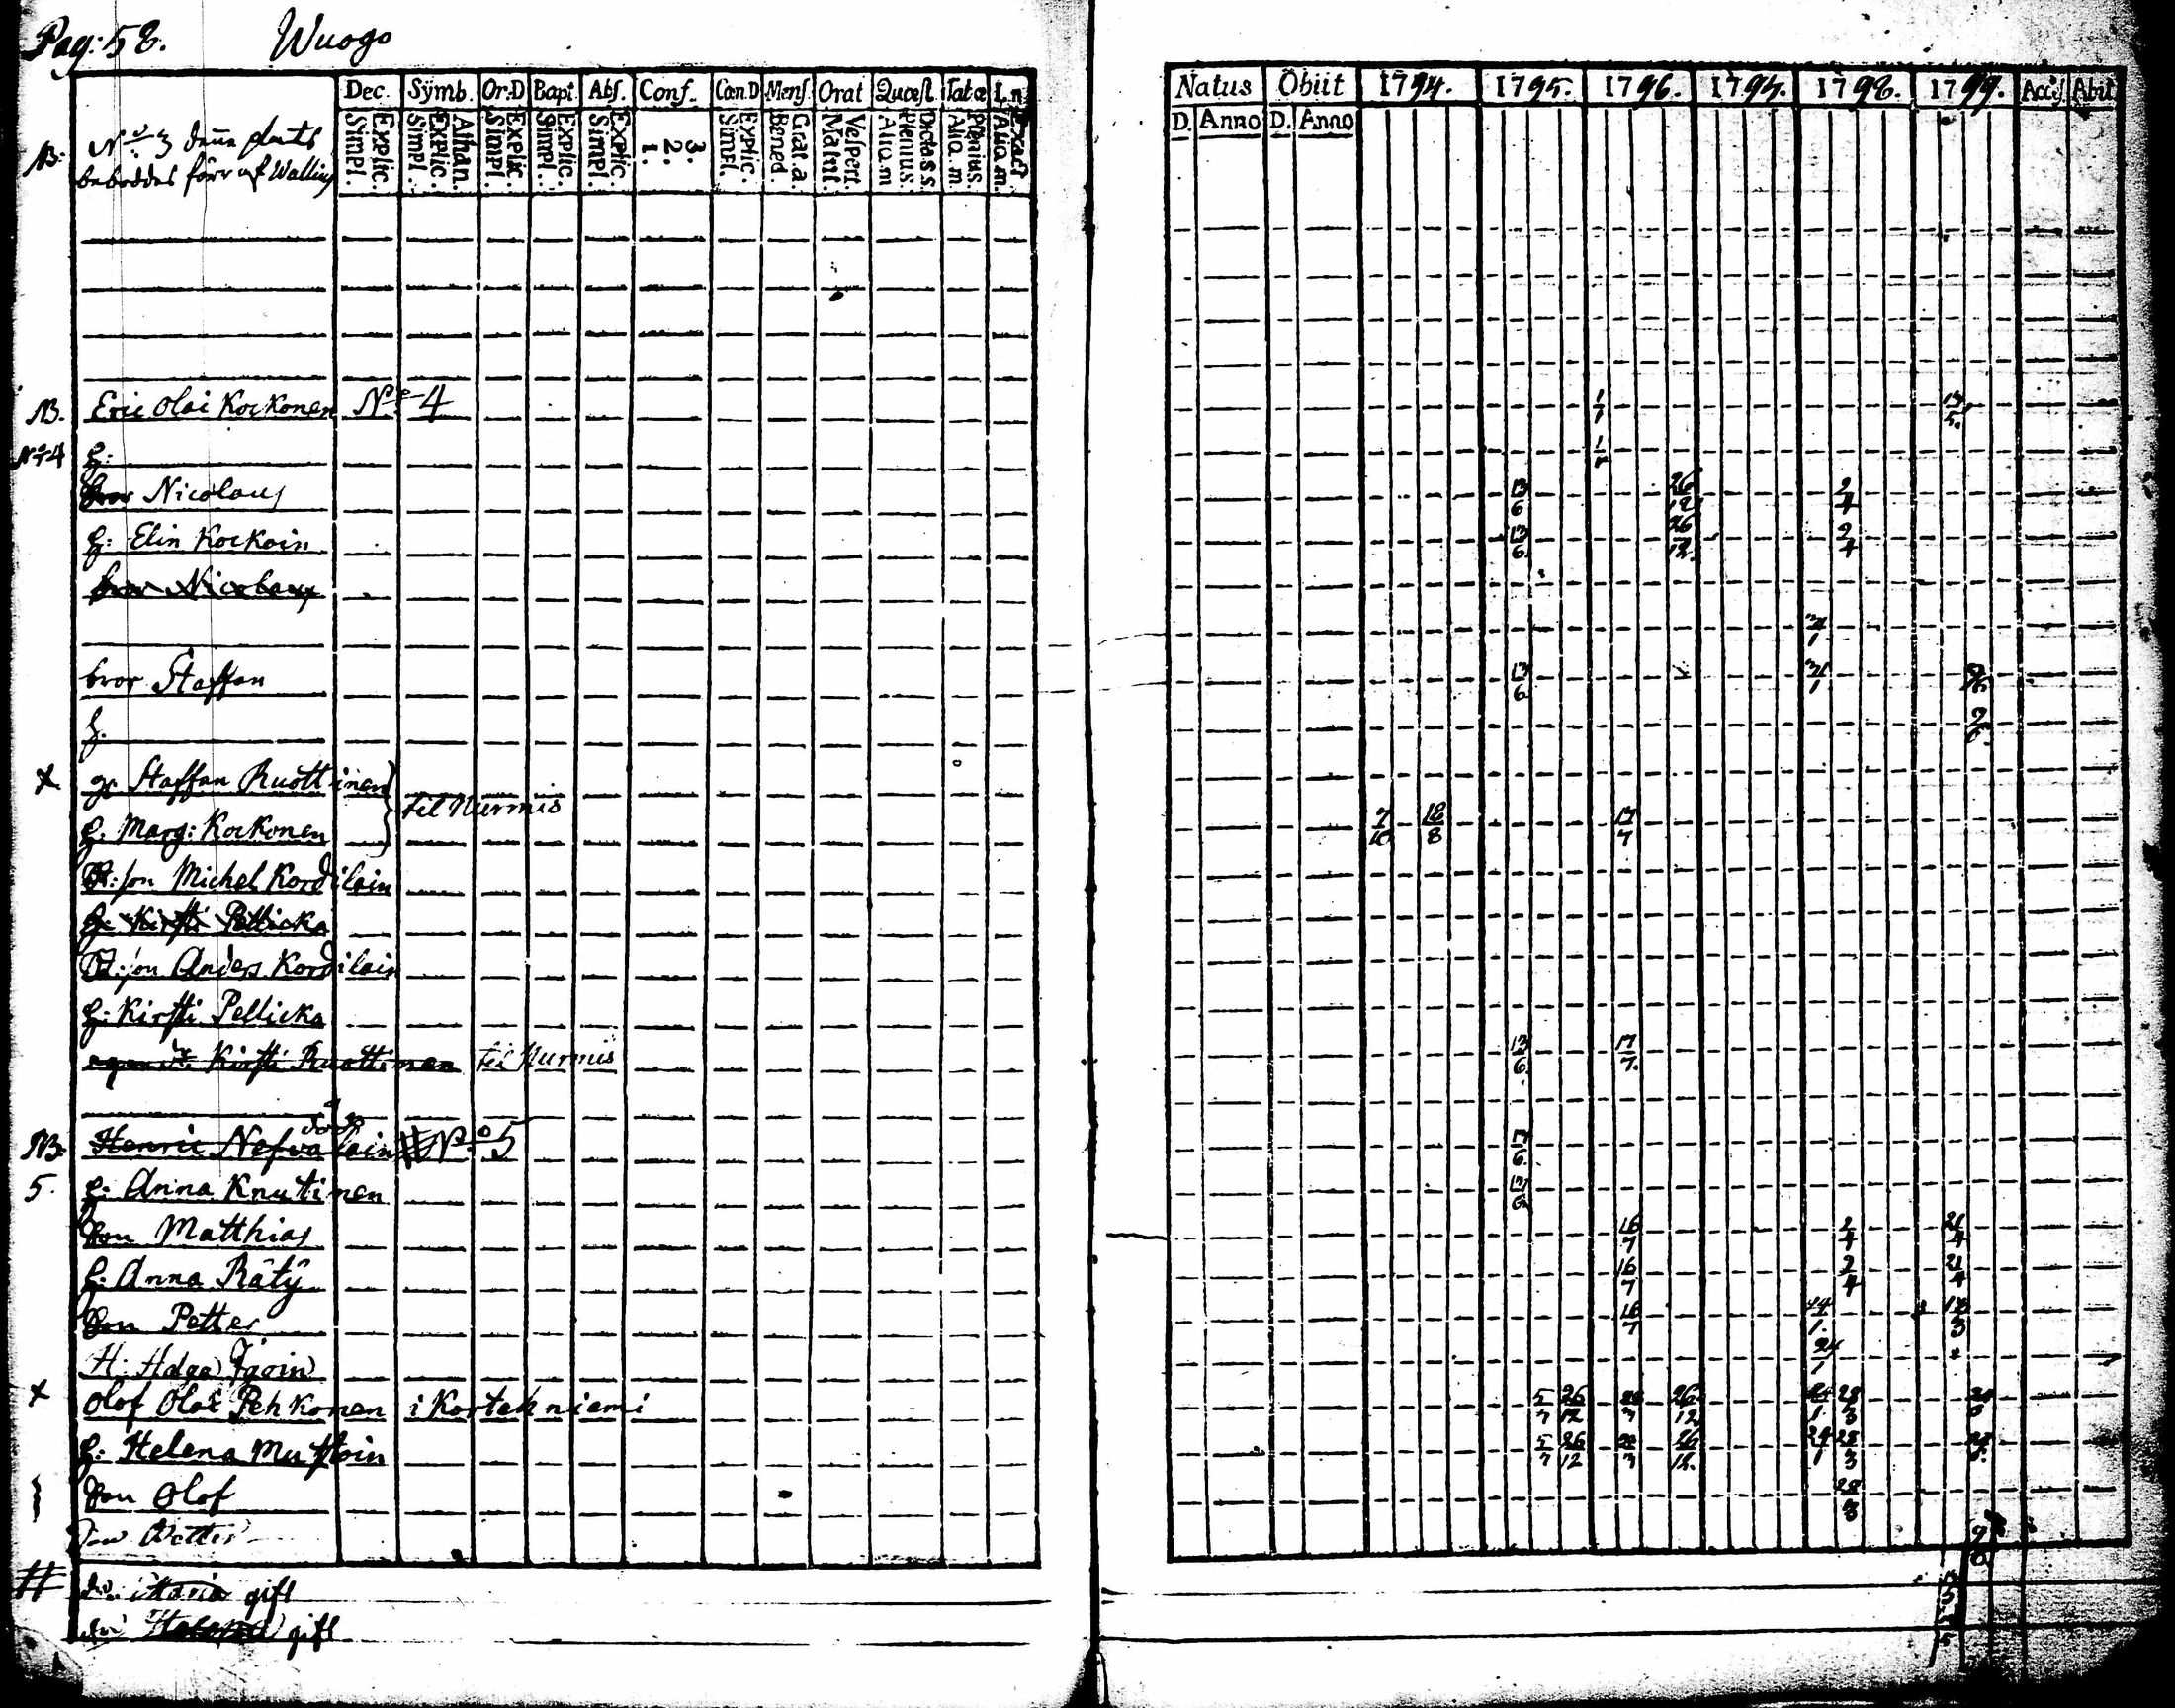 Pag: 58. Wuogo
Dec. Symb. Or:D Bapt. Abs. Conf. Cœn.D Mens. Orat Quœst. Tatœ
Explic. Simpl. Athan. Explic. Simpl. Explic. Simpl. Explic. Simpl. Explic. Simpl. 3. 2. 1. Explic. Simpl. Grat. a. Bened Vespert. Matut. Dictass. Plenius. Alia.m Plenius. Alia.m Exact Alia.m.
Natus Obiit 1794. 1795. 1796. 1797. 1798. 1799. Accis Abit
D. Anno D. Anno
NB: No 3 denna plats
beboddes förr af Wallius
NB. Eric Olai Kockonen No 4 1/1 13/5.
No 4 h: 1/1
bror Nicolaus 13/6 26/12 2/4
h: Elin Kockoin 13/6. 26/12. 2/4
bror Nicolaus
21/1
bror Staffan 13/6 21/1
h.
x gr Staffan Ruottinen
til Nurmis
h. Marg: Kockonen 7/10 18/8 17/7
Michel Kordilain
h: Kirsti Pellicka
Anders Kordilain
h: Kirsti Pellicka
Kirsti Ruottinen til Nurmis 13/6. 17/7.
död
NB. Henric Nefvalain # No 5 17/6.
5. h: Anna Knutinen 17/6.
Son Matthias 16/7 2/4 21/4
h: Anna Räty 16/7 2/4 21/4
Son Petter 16/7 24/1. 13/3
H: Helga 24/1
x Olof Olai Pehkonen i Kortehniemi 5/7 26/12 26/12 24/1 28/3
h: Helena Mustoin 5/7 26/12 26/12. 24/1 28/3
Son Olof 28/3
Son Petter
# dr: Maria gift
dr: Helena gift